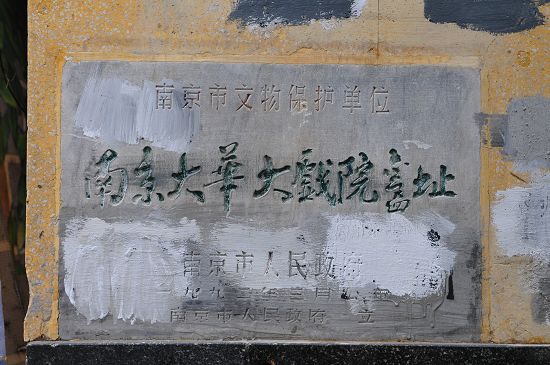 南京市文物保护单位
南京大华大戏院旧址
南京市人民政府
一九九二年三月
南京市人民政府 立